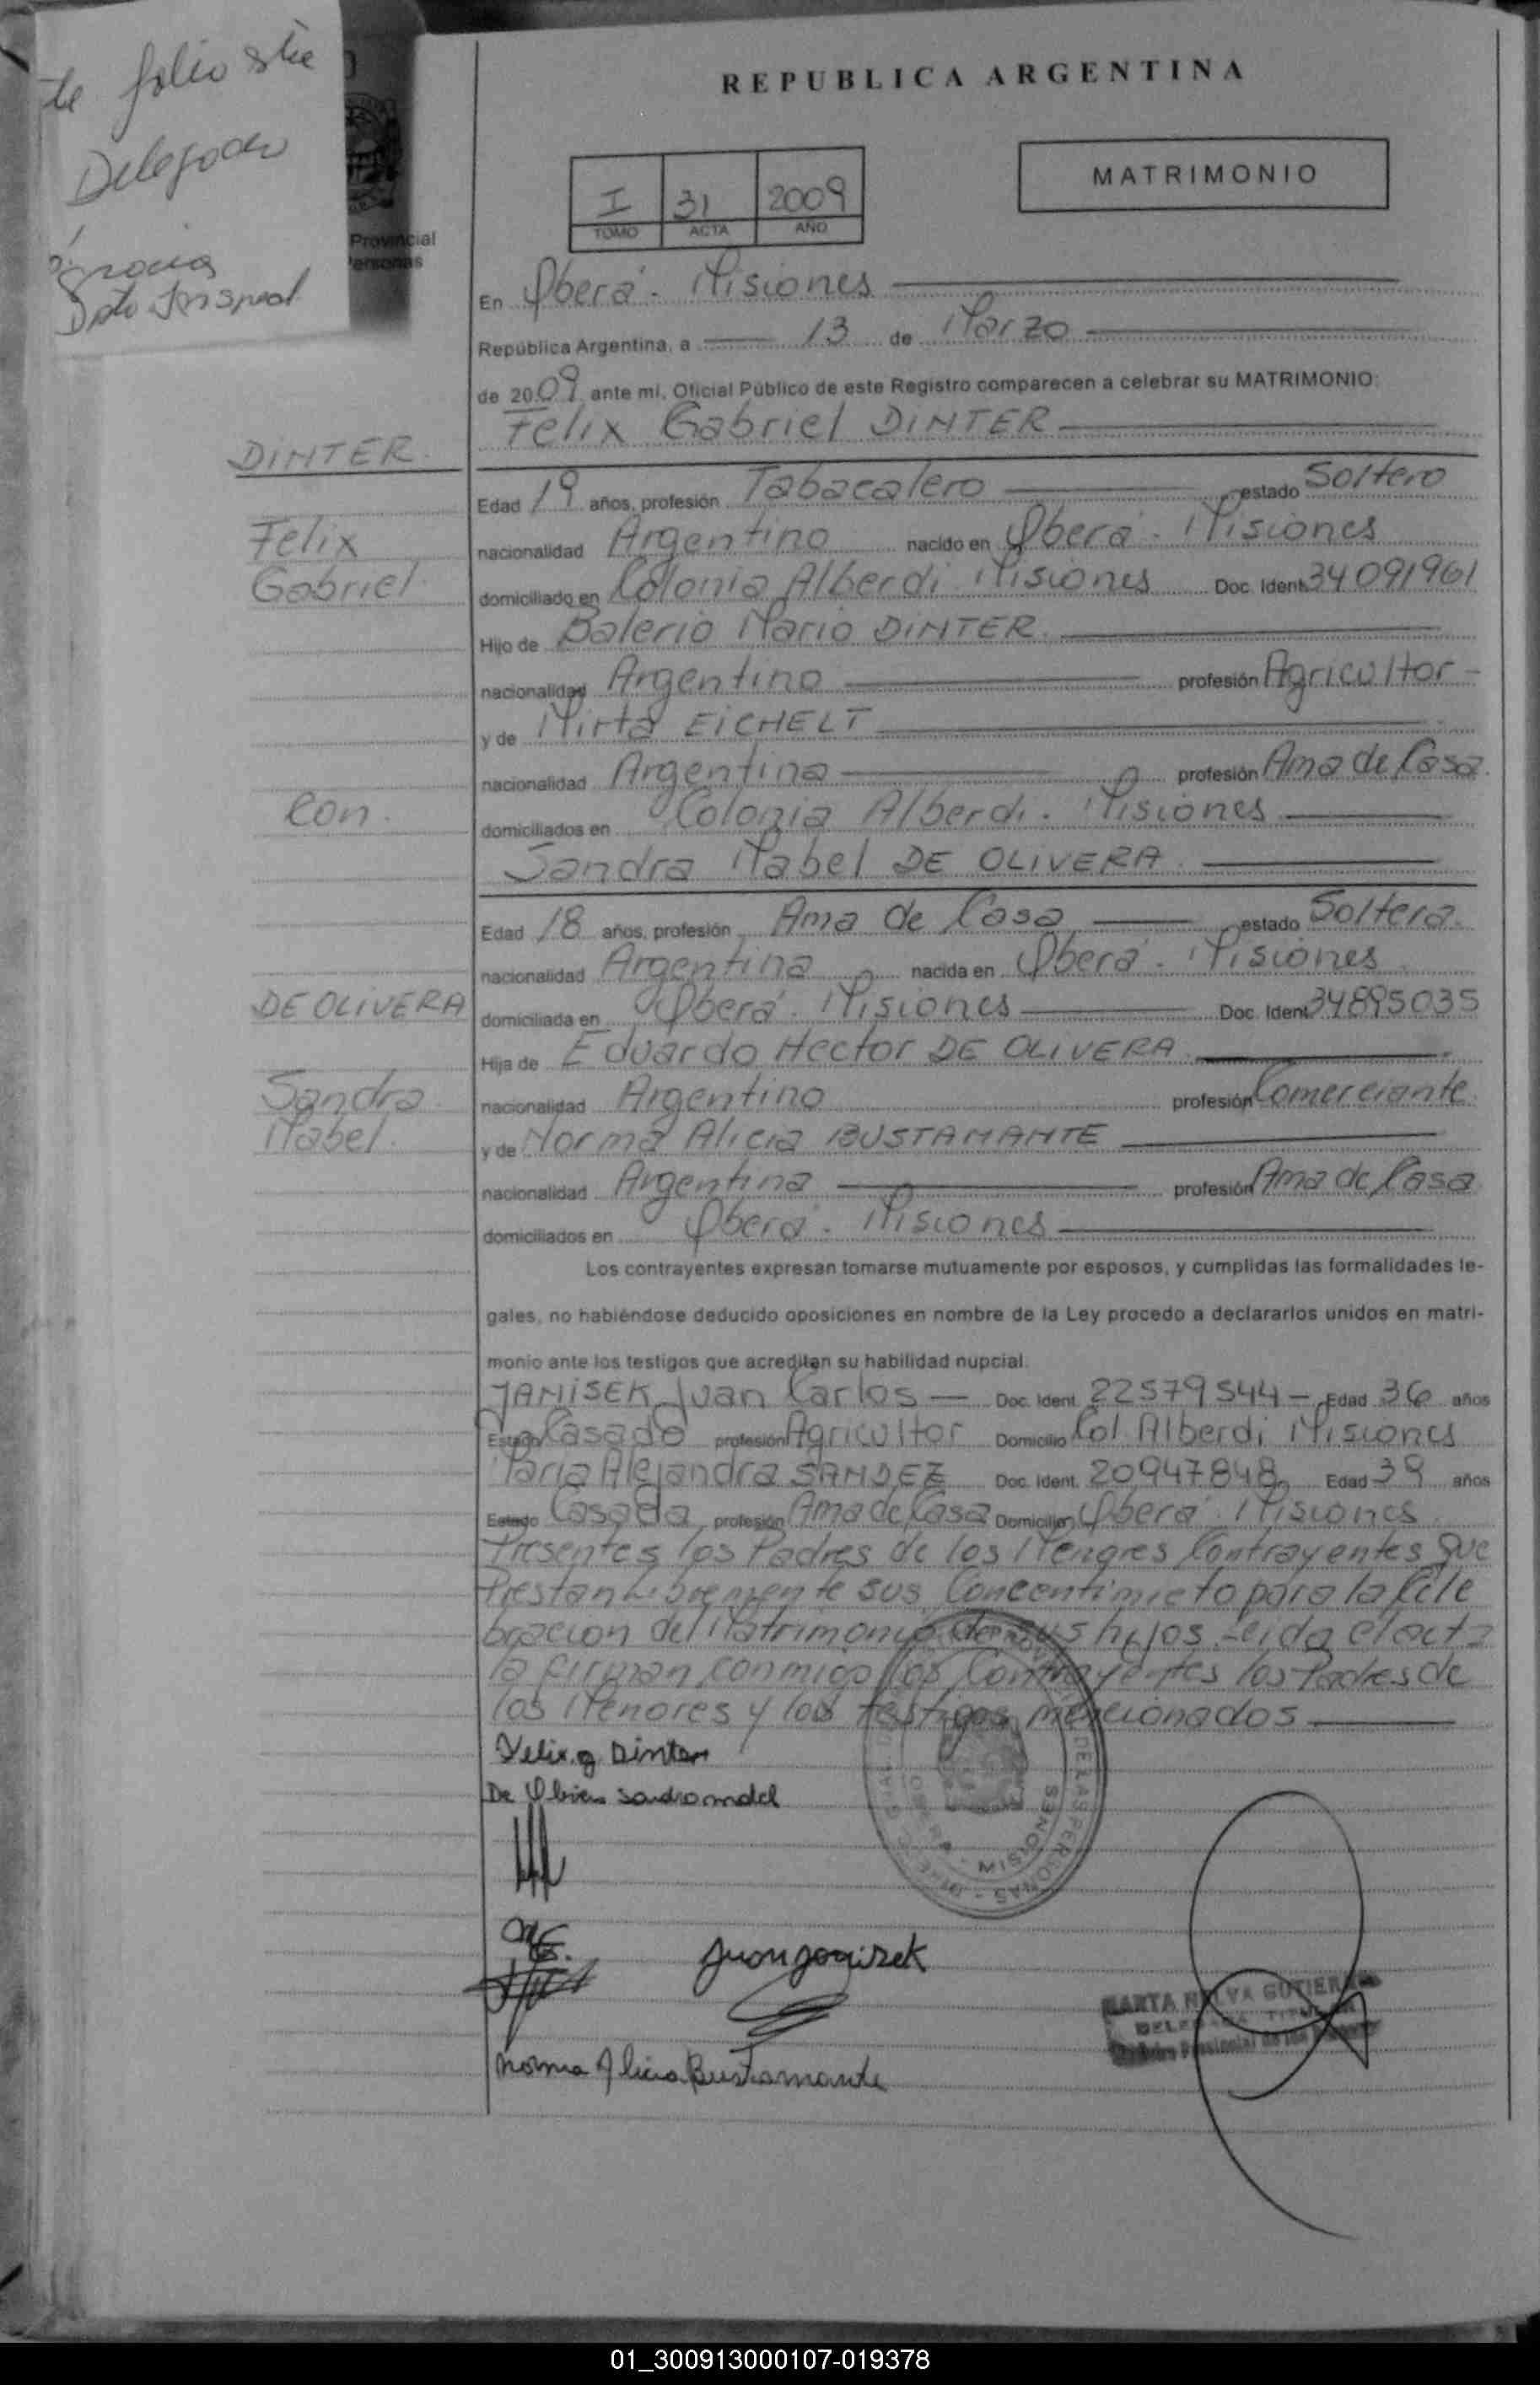 te folio
Delegado
gracias
Dpto
Provincial
Personas
REPUBLICA ARGENTINA
I 31 2009
TOMO ACTA AÑO
MATRIMONIO
En Oberá - Misiones
República Argentina, a 13 de Marzo
de 2009 ante mi, Oficial Público de este Registro comparecen a celebrar su MATRIMONIO:
Felix Gabriel DINTER
DINTER.
Edad 19 años, profesión Tabacalero estado Soltero
Felix
nacionalidad Argentino nacido en Oberá - Misiones
Gabriel.
domiciliado en Colonia Alberdi. Misiones Doc. Ident. 34091961
Hijo de Balerio Mario DINTER.
nacionalidad Argentino profesión Agricultor -
y de Mirta EICHELT
nacionalidad Argentina profesión Ama de Casa
Con.
domiciliados en Colonia Alberdi. Misiones
Sandra Mabel DE OLIVERA.
Edad 18 años, profesión Ama de Casa estado Soltera.
nacionalidad Argentina nacida en Oberá - Misiones
DE OLIVERA
domiciliada en Oberá. Misiones Doc. Ident. 34895035
Hija de Eduardo Hector DE OLIVERA.
Sandra
nacionalidad Argentino profesión Comerciante.
Mabel.
y de Norma Alicia BUSTAMANTE
nacionalidad Argentina profesión Ama de Casa
domiciliados en Oberá - Misiones
Los contrayentes expresan tomarse mutuamente por esposos, y cumplidas las formalidades le-
gales, no habiéndose deducido oposiciones en nombre de la Ley procedo a declararlos unidos en matri-
monio ante los testigos que acrediten su habilidad nupcial.
JANISEK Juan Carlos — Doc. Ident. 22579544 - Edad 36 años
Estado Casado profesión Agricultor Domicilio Col Alberdi Misiones
Maria Alejandra SANDEZ Doc. Ident. 20947848 Edad 39 años
Estado Casada profesión Ama de Casa Domicilio Oberá. Misiones
Presentes los Padres de los Menores Contrayentes que
Prestan Libremente sus Concentimieto para la Cele
bracion del Matrimonio de sus hijos. Leida el acta
la firman conmigo los Contrayentes los Padres de
los Menores y los testigos mencionados
Felix g Dinter
De Olivera Sandra mabel
DE LAS PERSONAS
MISIONES
Juan Janisek
MARTA NELVA GUTIERREZ
DELEGADA TITULAR
Registro Provincial de las Personas
Norma Alicia Bustamante
01_300913000107-019378